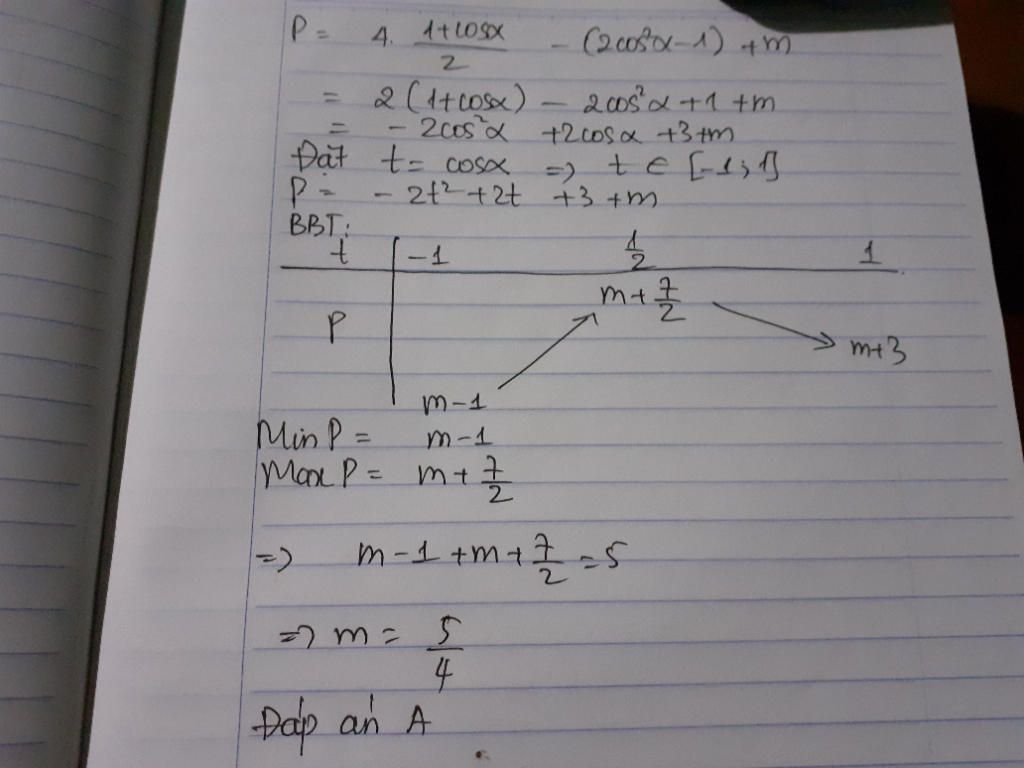 P = 4. (1+cosα)/2 - (2cos²α-1) + m
= 2(1+cosα) - 2cos²α+1+m
= - 2cos²α +2cosα +3+m
Đặt t = cosα => t ∈ [-1;1]
P = - 2t²+2t +3+m
BBT:
t -1 1/2 1
m+7/2
P
m+3
m-1
Min P = m-1
Max P = m+7/2
=> m-1+m+7/2=5
=> m = 5/4
Đáp án A